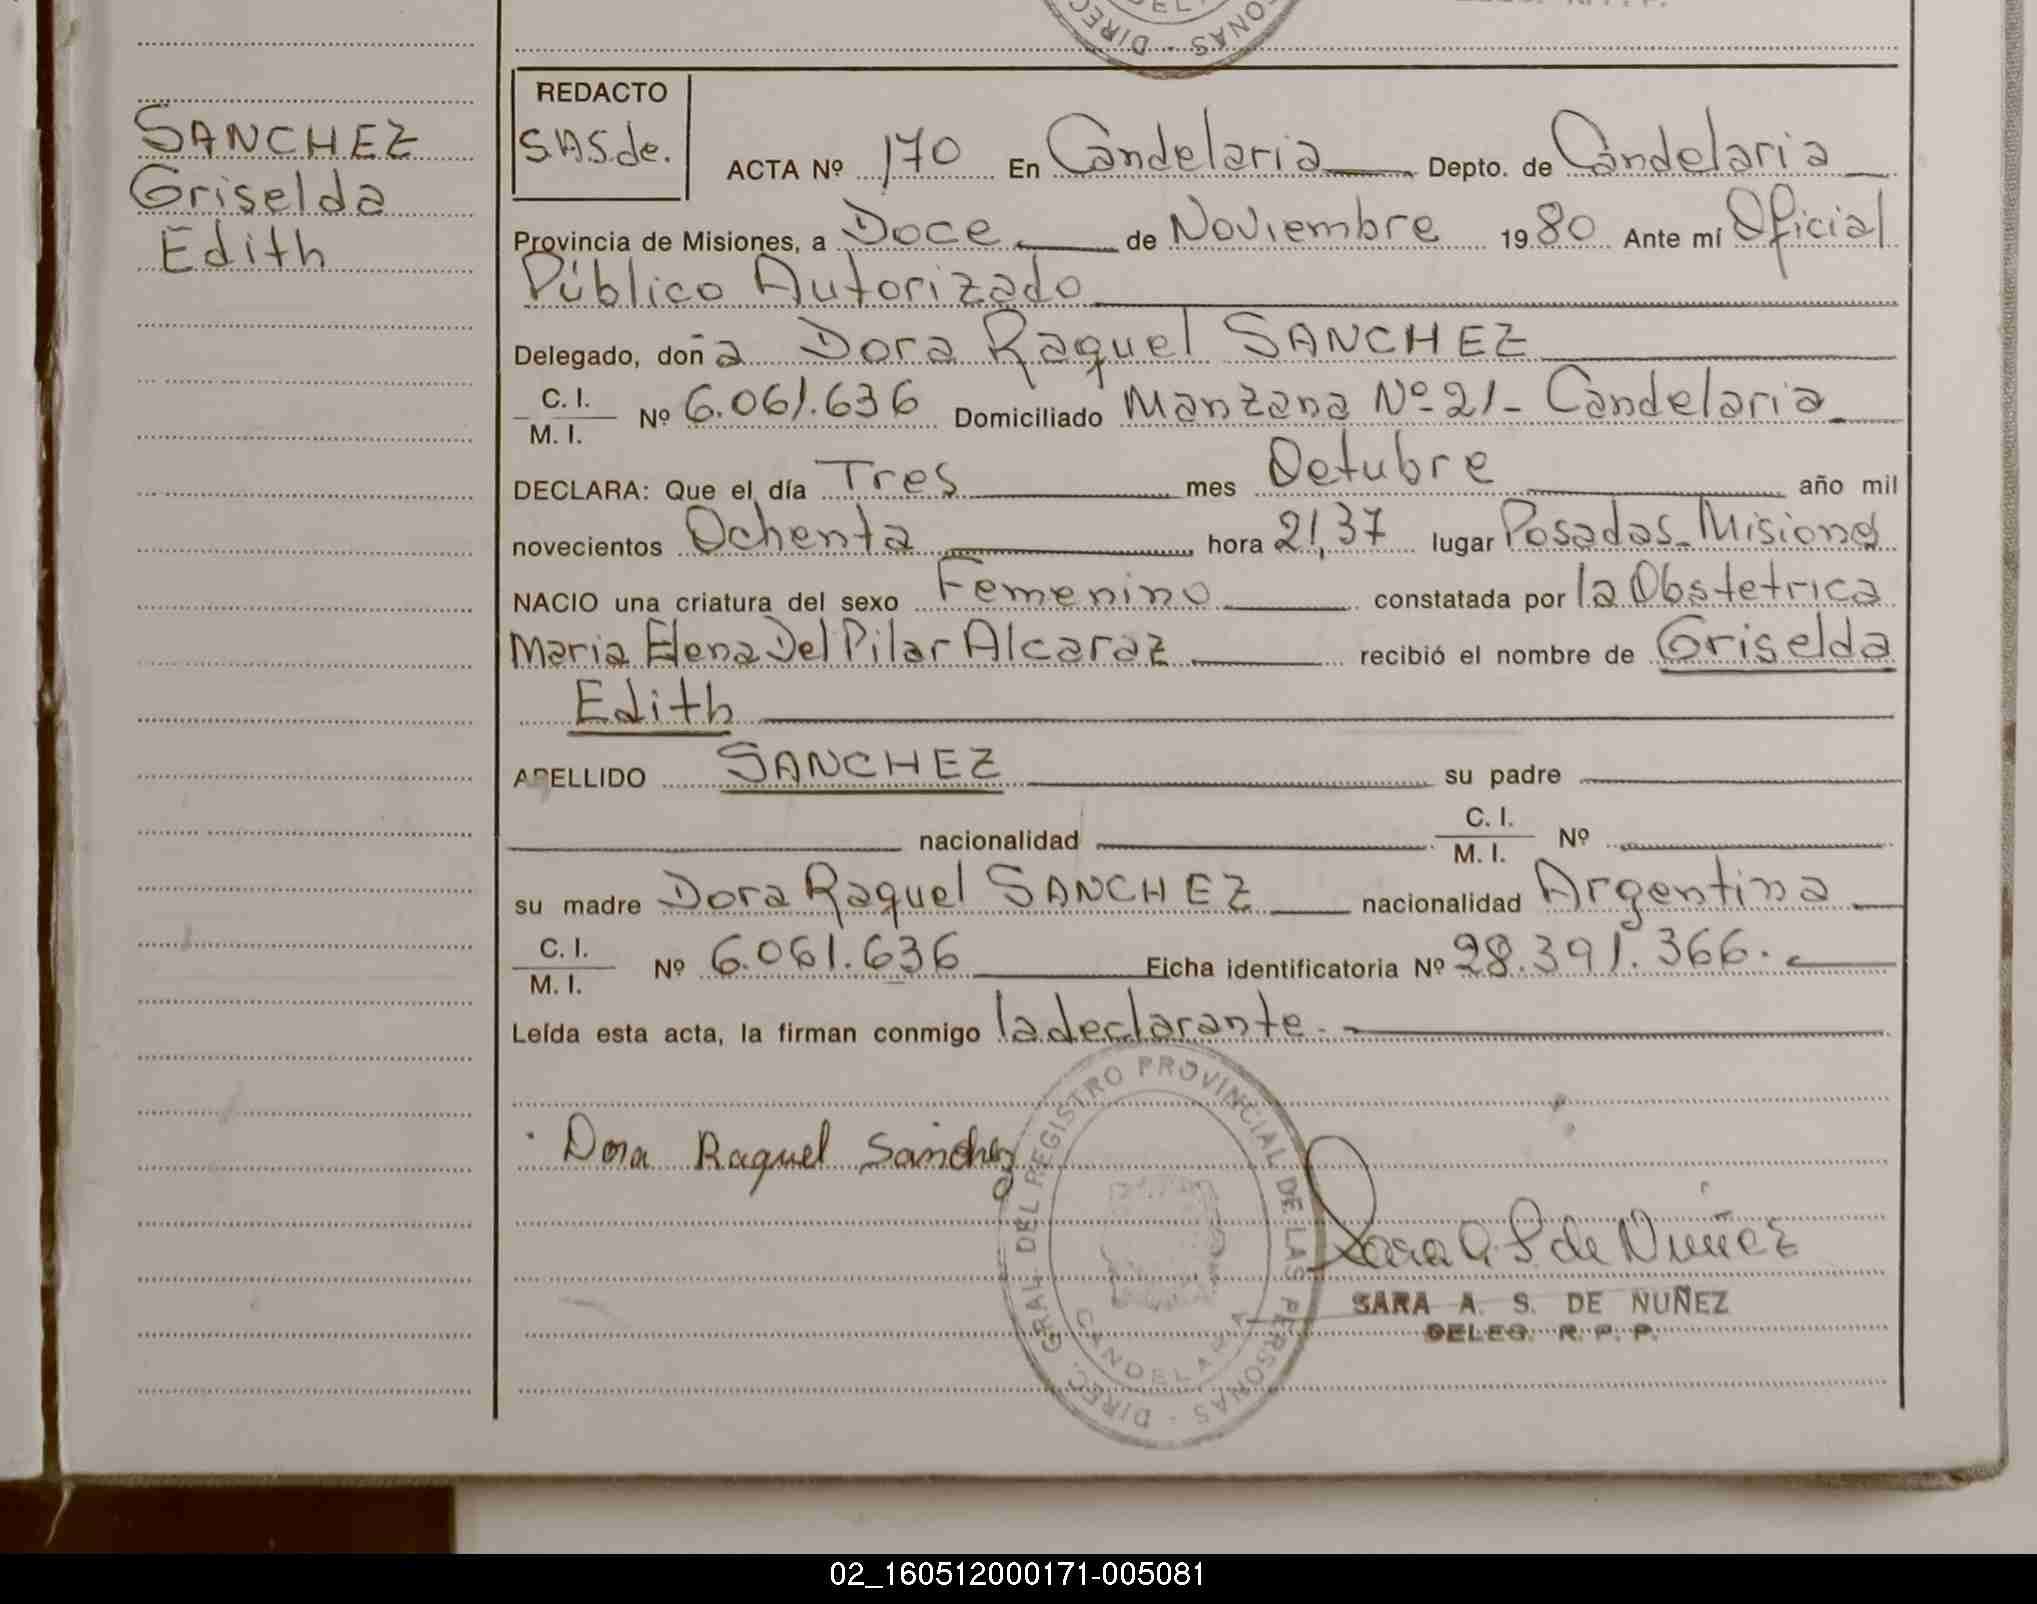 SANCHEZ
Griselda
Edith
DIREC. PERSONAS
REDACTO
S.A.S.de.
ACTA Nº 170 En Candelaria Depto. de Candelaria
Provincia de Misiones, a Doce de Noviembre 1980 Ante mí Oficial
Público Autorizado
Delegado, doña Dora Raquel SANCHEZ
C. I.
M. I. Nº 6.061.636 Domiciliado Manzana Nº 21- Candelaria
DECLARA: Que el día Tres mes Octubre año mil
novecientos Ochenta hora 21,37 lugar Posadas-Misiones
NACIO una criatura del sexo Femenino constatada por la Obstetrica
Maria Elena Del Pilar Alcaraz recibió el nombre de Griselda
Edith
APELLIDO SANCHEZ su padre
nacionalidad C. I.
M. I. Nº
su madre Dora Raquel SANCHEZ nacionalidad Argentina
C. I.
M. I. Nº 6.061.636 Ficha identificatoria Nº 28.391.366.
Leída esta acta, la firman conmigo la declarante.
Dora Raquel Sánchez
DIREC. GRAL. DEL REGISTRO PROVINCIAL DE LAS PERSONAS
CANDELARIA
Sara A. S. de Nuñez
SARA A. S. DE NUÑEZ
DELEG. R. P. P.
02_160512000171-005081